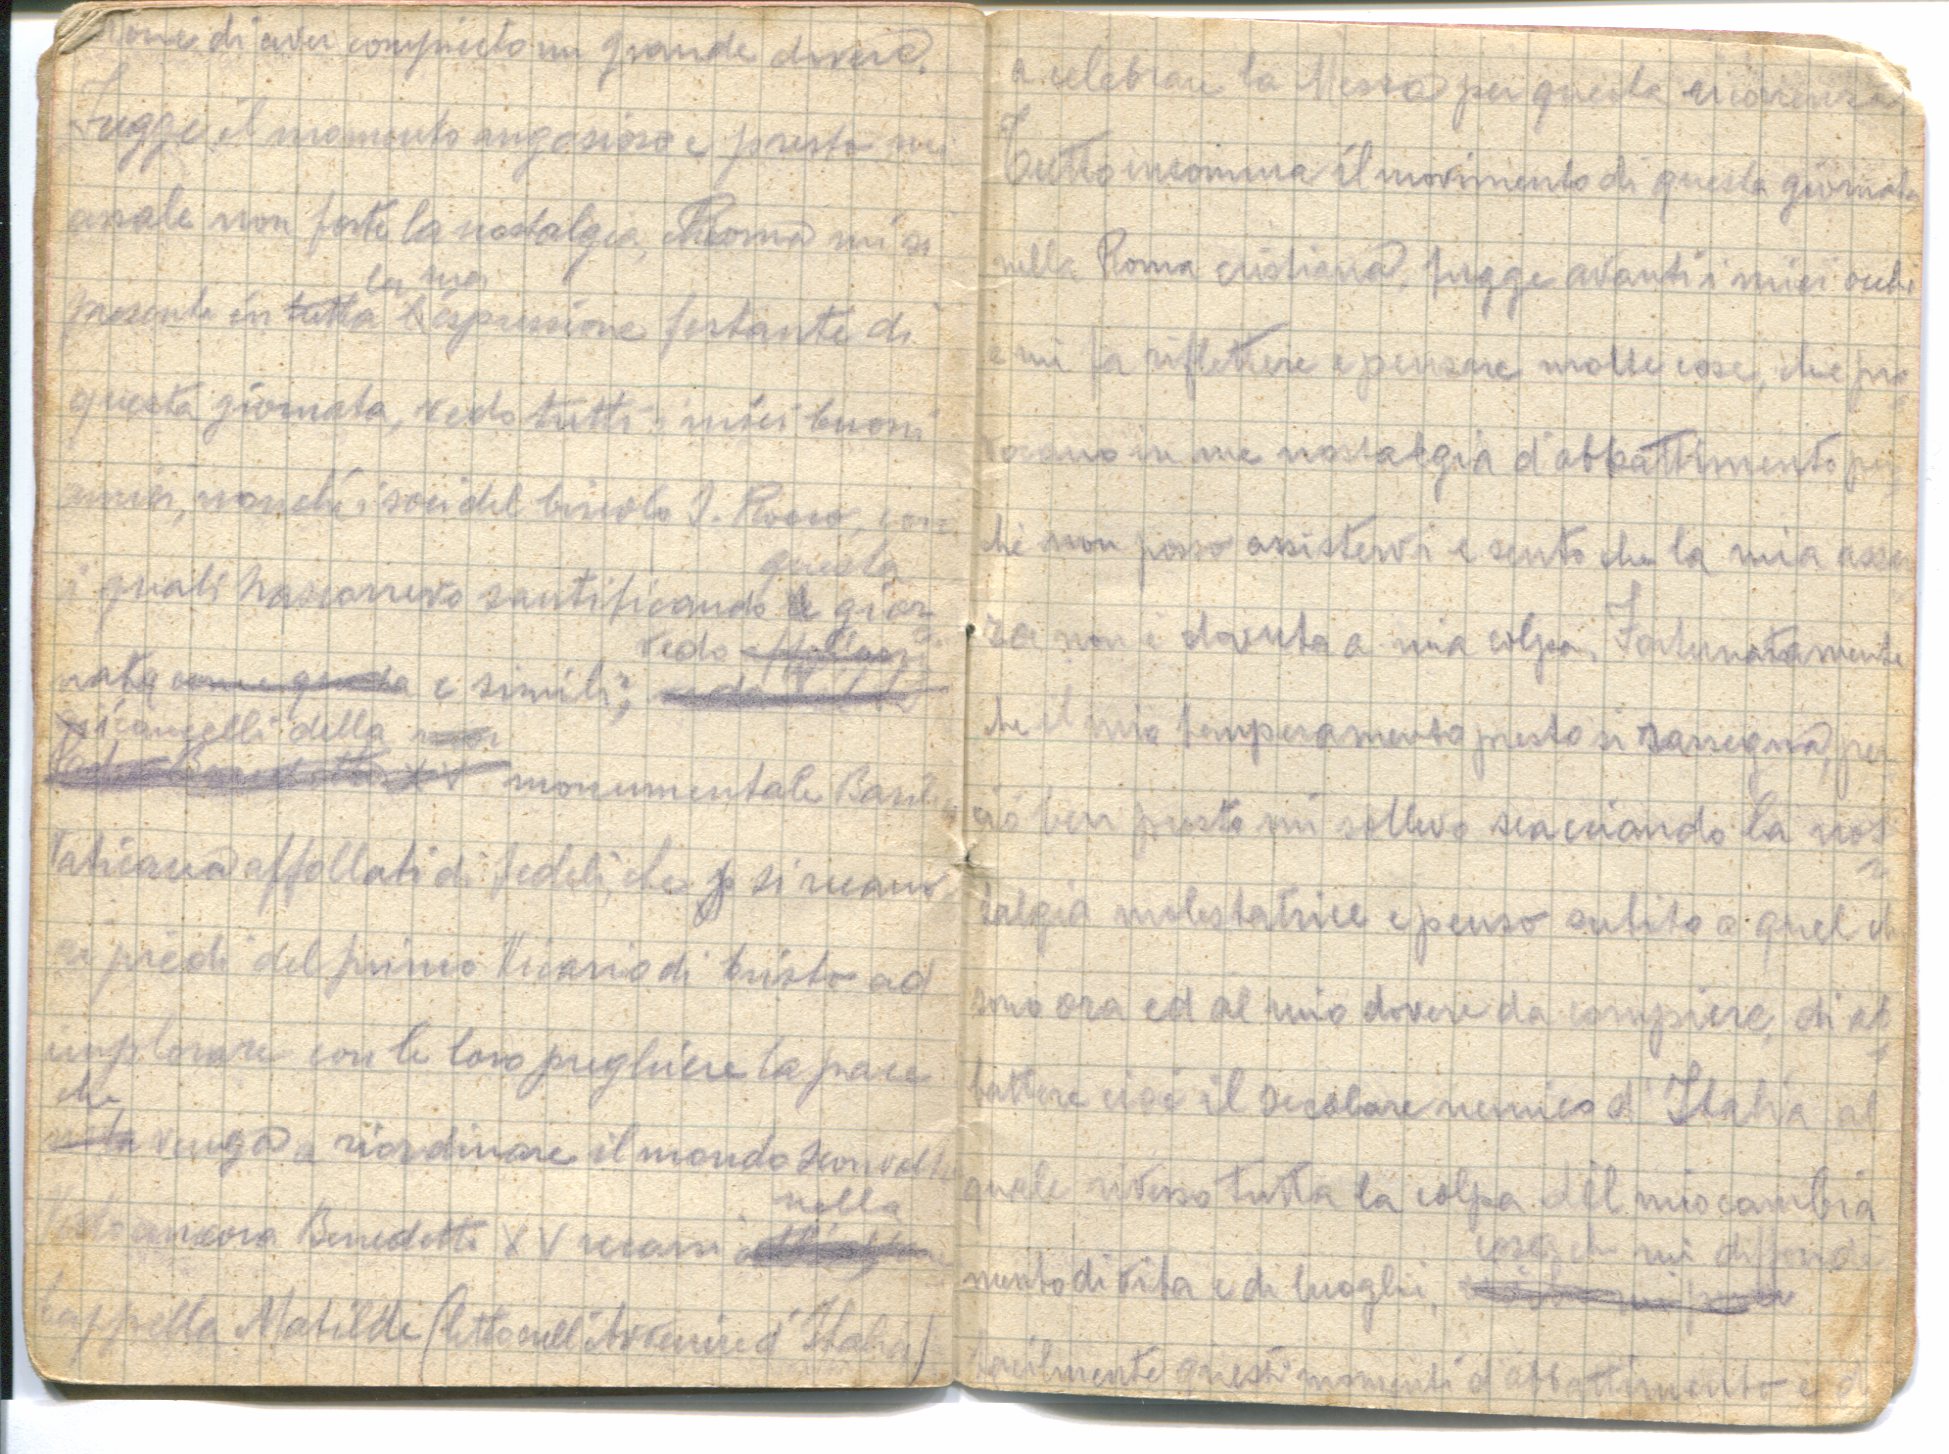 zione di aver compiuto un grande dovere.
Fugge il momento angosioso e presto mi
assale non forte la nostalgia, Roma mi si
la sua
presenta in tutta l'espressione festante di
questa giornata, vedo tutti i miei buoni
amici, nonché i soci del Circolo S. Rocco, con
questa
i quali trascorrevo santificando le gior
vedo affollarsi
nata come questa e simili;
i cancelli della
monumentale Basilica
Vaticana affollati di fedeli, che si recano
ai piedi del primo Vicario di Cristo ad
implorare con le loro preghiere la pace
che
venga a riordinare il mondo sconvolto
nella
Vedo ancora Benedetto XV recarsi
Cappella Matilde (letto nell'Avvenire d'Italia)
a celebrare la Messa per questa ricorrenza
Tutto insomma il movimento di questa giornata
nella Roma cristiana, fugge avanti i miei occhi
e mi fa riflettere e pensare molte cose, che pro
vocano in me nostalgia d'abbattimento per
chè non posso assistervi e sento che la mia assen
za non è dovuta a mia colpa. Fortunatamente
che il mio temperamento presto si rassegna, per
ciò ben presto mi sollevo scacciando la nos
talgia molestatrice e penso subito a quel che
sono ora ed al mio dovere da compiere, di ab
battere cioè il secolare nemico d'Italia al
quale riverso tutta la colpa del mio cambia
cosa che mi difende
mento di vita e di luoghi,
facilmente questi momenti d'abbattimento e di